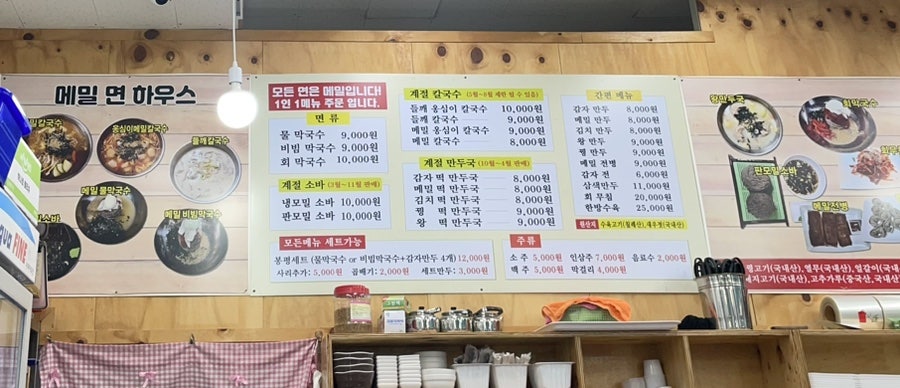 메밀 면 하우스
들깨칼국수
옹심이메밀칼국수
메밀 물막국수
메밀 비빔막국수
모든 면은 메밀입니다!
1인 1메뉴 주문 입니다.
면 류
물 막국수 9,000원
비빔 막국수 9,000원
회 막국수 10,000원
계절 소바 (3월~11월 판매)
냉모밀 소바 10,000원
판모밀 소바 10,000원
계절 칼국수 (5월~8월 제한 될 수 있음)
들깨 옹심이 칼국수 10,000원
들깨 칼국수 9,000원
메밀 옹심이 칼국수 9,000원
메밀 칼국수 8,000원
계절 만두국 (10월~4월 판매)
감자 떡 만두국 8,000원
메밀 떡 만두국 8,000원
김치 떡 만두국 8,000원
꿩 떡 만두국 9,000원
왕 떡 만두국 9,000원
간편 메뉴
감자 만두 8,000원
메밀 만두 8,000원
김치 만두 8,000원
왕 만두 9,000원
꿩 만두 9,000원
메밀 전병 9,000원
감자 전 6,000원
삼색만두 11,000원
회 무침 20,000원
한방수육 25,000원
원산지 수육고기(칠레산), 새우젓(국내산)
모든메뉴 세트가능
봉평세트 (물막국수 or 비빔막국수+감자만두 4개) 12,000원
사리추가: 5,000원 곱빼기: 2,000원 세트만두: 3,000원
주류
소 주 5,000원 인삼주 7,000원 음료수 2,000원
맥 주 5,000원 막걸리 4,000원
왕만두국
회막국수
판모밀소바
메밀전병
고기(국내산), 열무(국내산), 얼갈이(국내
돼지고기(국내산), 고추가루(중국산, 국내산